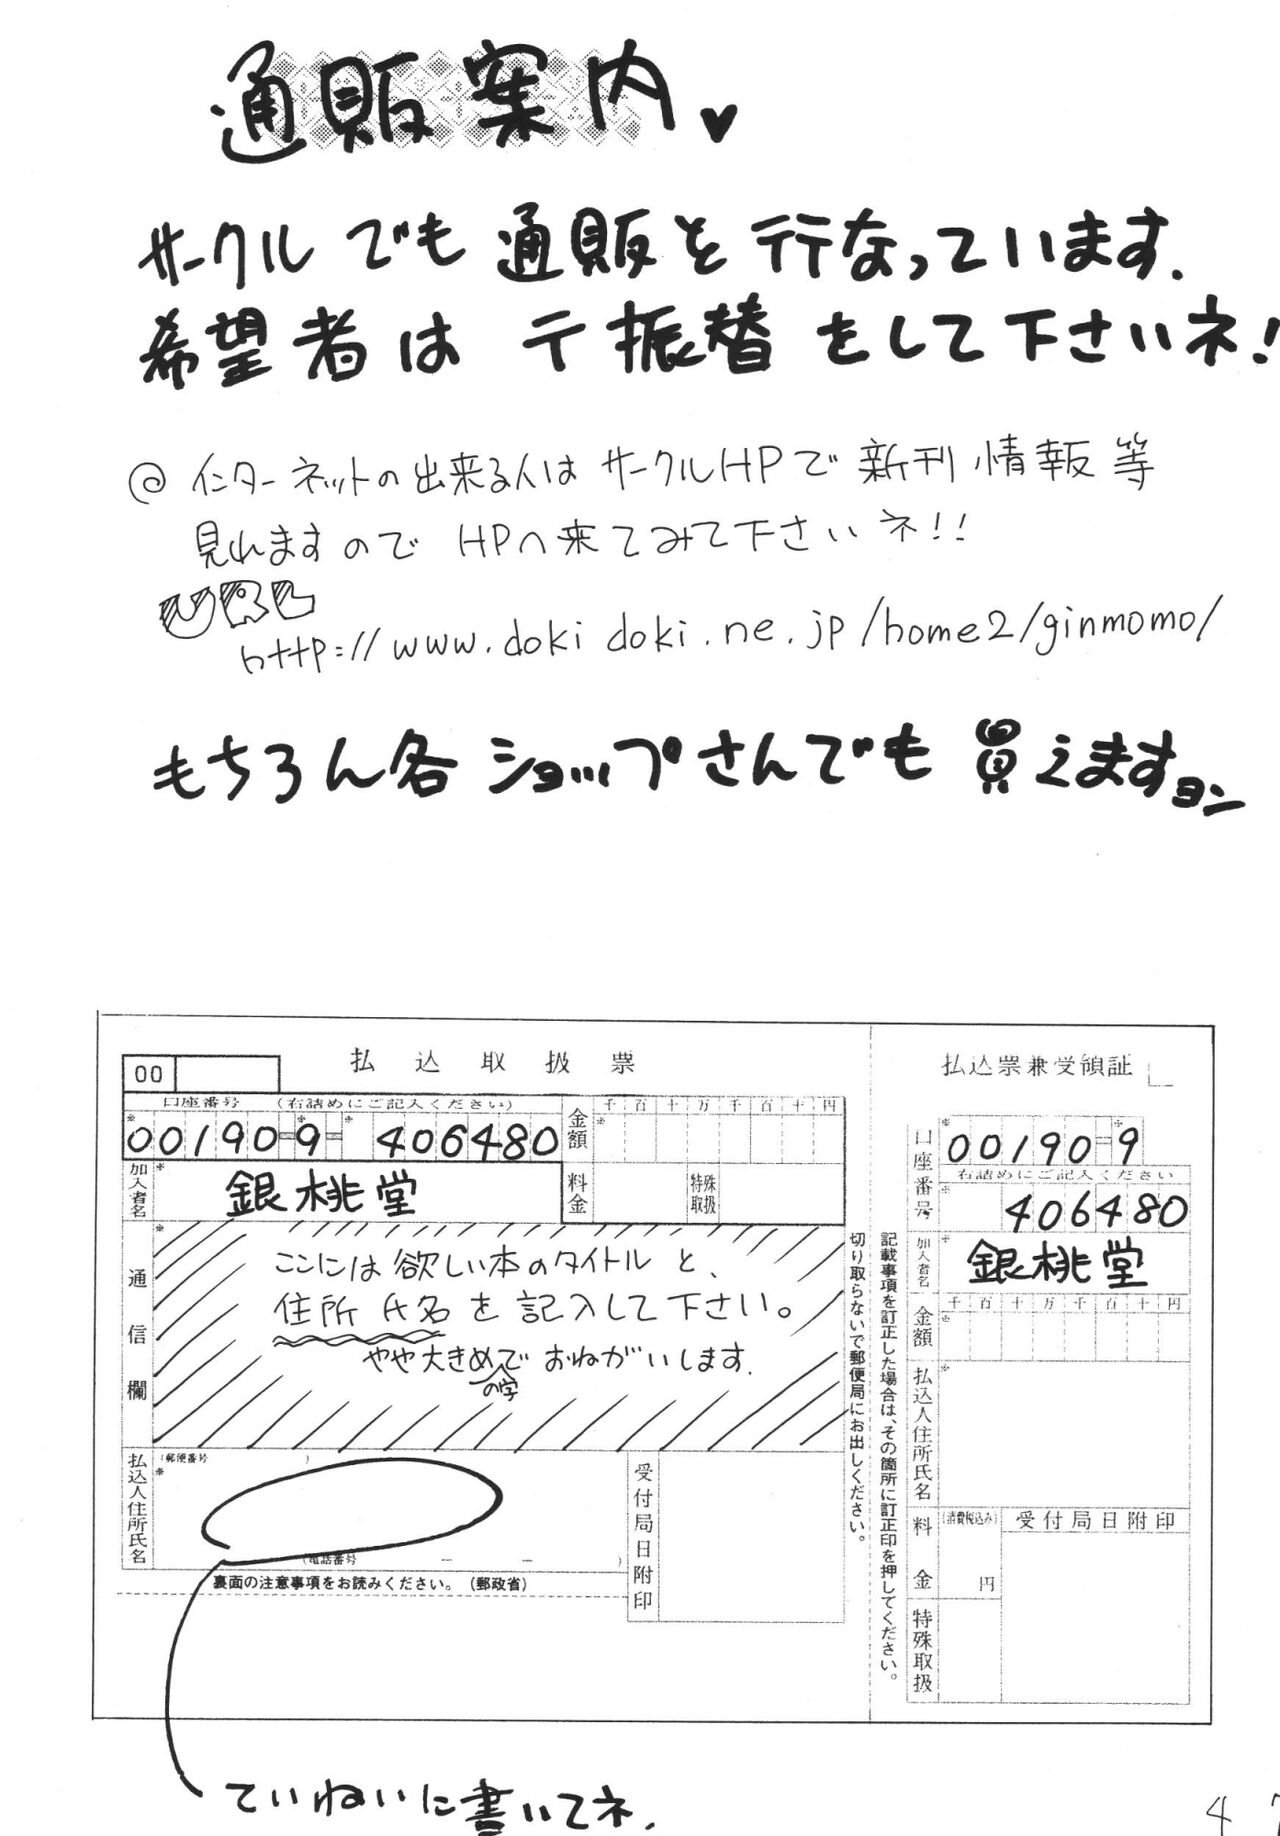 通販案内♥
サークルでも通販を行なっています.
希望者は〒振替をして下さいネ!
@インターネットの出来る人はサークルHPで新刊情報等
見れますのでHPへ来てみて下さいネ!!
URL
http://www.dokidoki.ne.jp/home2/ginmomo/
もちろん各ショップさんでも買えますョン
払込取扱票
00
口座番号 (右詰めにご記入ください)
00190-9-406480
金額
千百十万千百十円
加入者名
銀桃堂
料金
特殊取扱
通信欄
ここには欲しい本のタイトルと、
住所氏名を記入して下さい。
やや大きめの字でおねがいします.
払込人住所氏名
(郵便番号 )
(電話番号 ー ー )
裏面の注意事項をお読みください。(郵政省)
受付局日附印
切り取らないで郵便局にお出しください。
記載事項を訂正した場合は、その箇所に訂正印を押してください。
払込票兼受領証
口座番号
00190-9
右詰めにご記入ください
406480
加入者名
銀桃堂
金額
千百十万千百十円
払込人住所氏名
料金
(消費税込み)
円
受付局日附印
特殊取扱
ていねいに書いてネ.
47